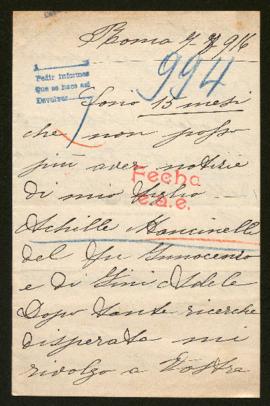 Roma 7 916
A
Pedir informes
Que se hace así
Devolver
994
Sono 15 mesi
che non posso
più aver notizie
Fecha
di mio figlio
e.a.e.
Achille Mancinelli
del fu Innocenzo
e di Gini Adele
Dopo tante ricerche
disperata mi
rivolgo a Vostra